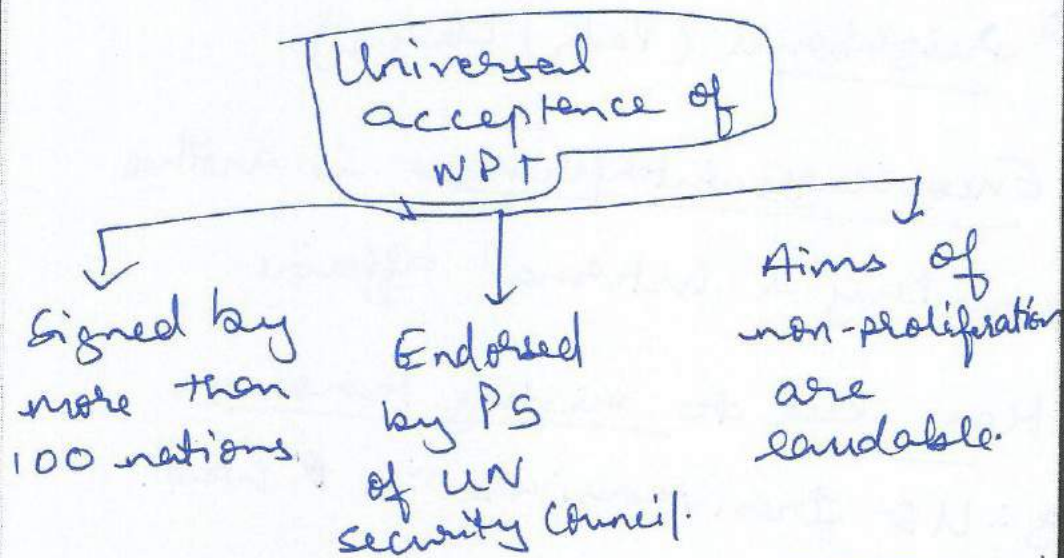 Universal
acceptence of
NPT
Signed by
more than
100 nations
Endorsed
by P5
of UN
security Council.
Aims of
non-proliferation
are
laudable.